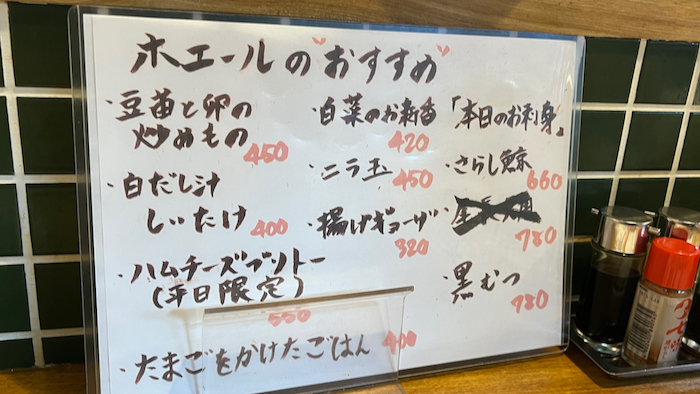 ホエールの"おすすめ"
・豆苗と卵の
炒めもの
450
・白だし汁
しいたけ 400
・ハムチーズブリトー
(平日限定)
550
・たまごをかけたごはん 400
・白菜のお新香
420
・ニラ玉 450
・揚げギョーザ
320
「本日のお刺身」
・さらし鯨
660
780
・黒むつ
980